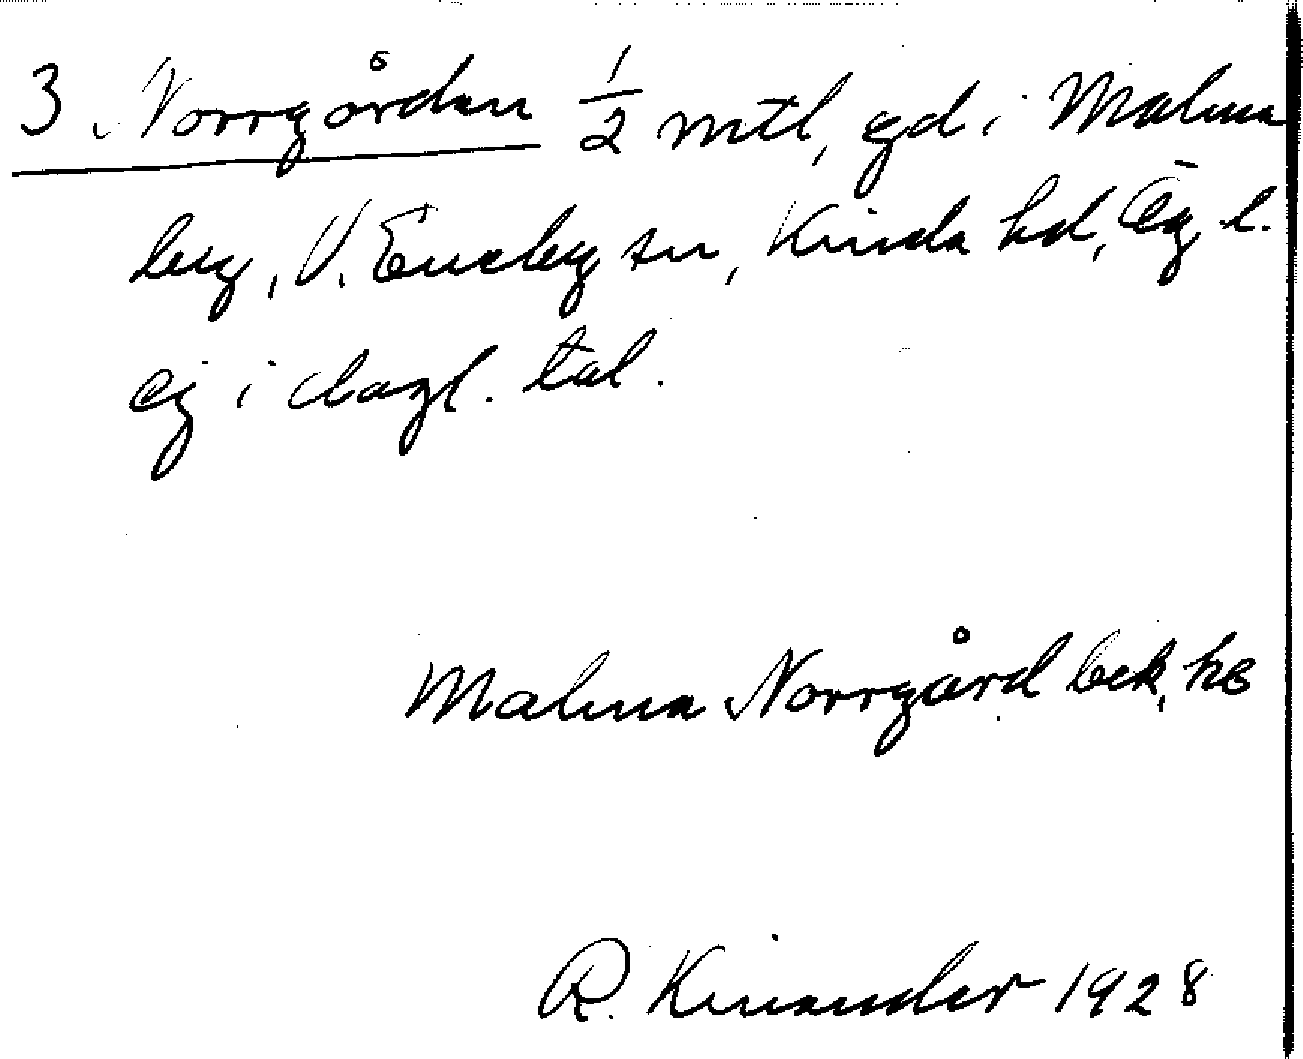 3 Norrgården 1/2 mtl, gd i Malma
by, V. Eneby sn, Kinda hd, Ög l.
ej i dagl. tal.
Malma Norrgård bek. hb
R. Kinander 1928